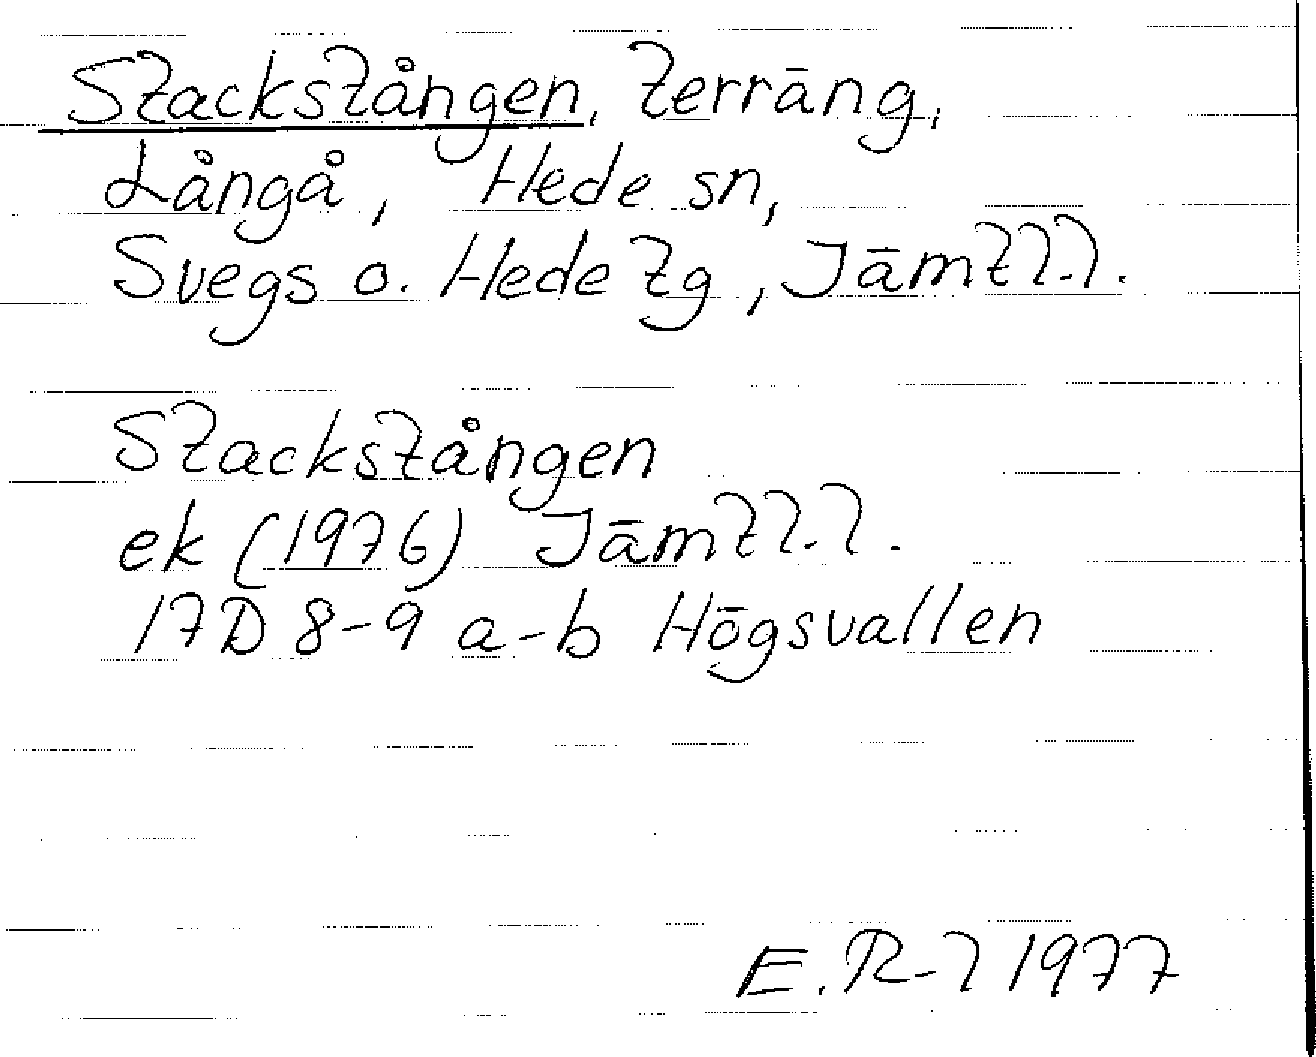 Stackstången, terräng,
Långå, Hede sn,
Svegs o. Hede tg, Jämtl.l.

Stackstången
ek (1976) Jämtl.l.
17D 8-9 a-b Högsvallen

E.R-l 1977